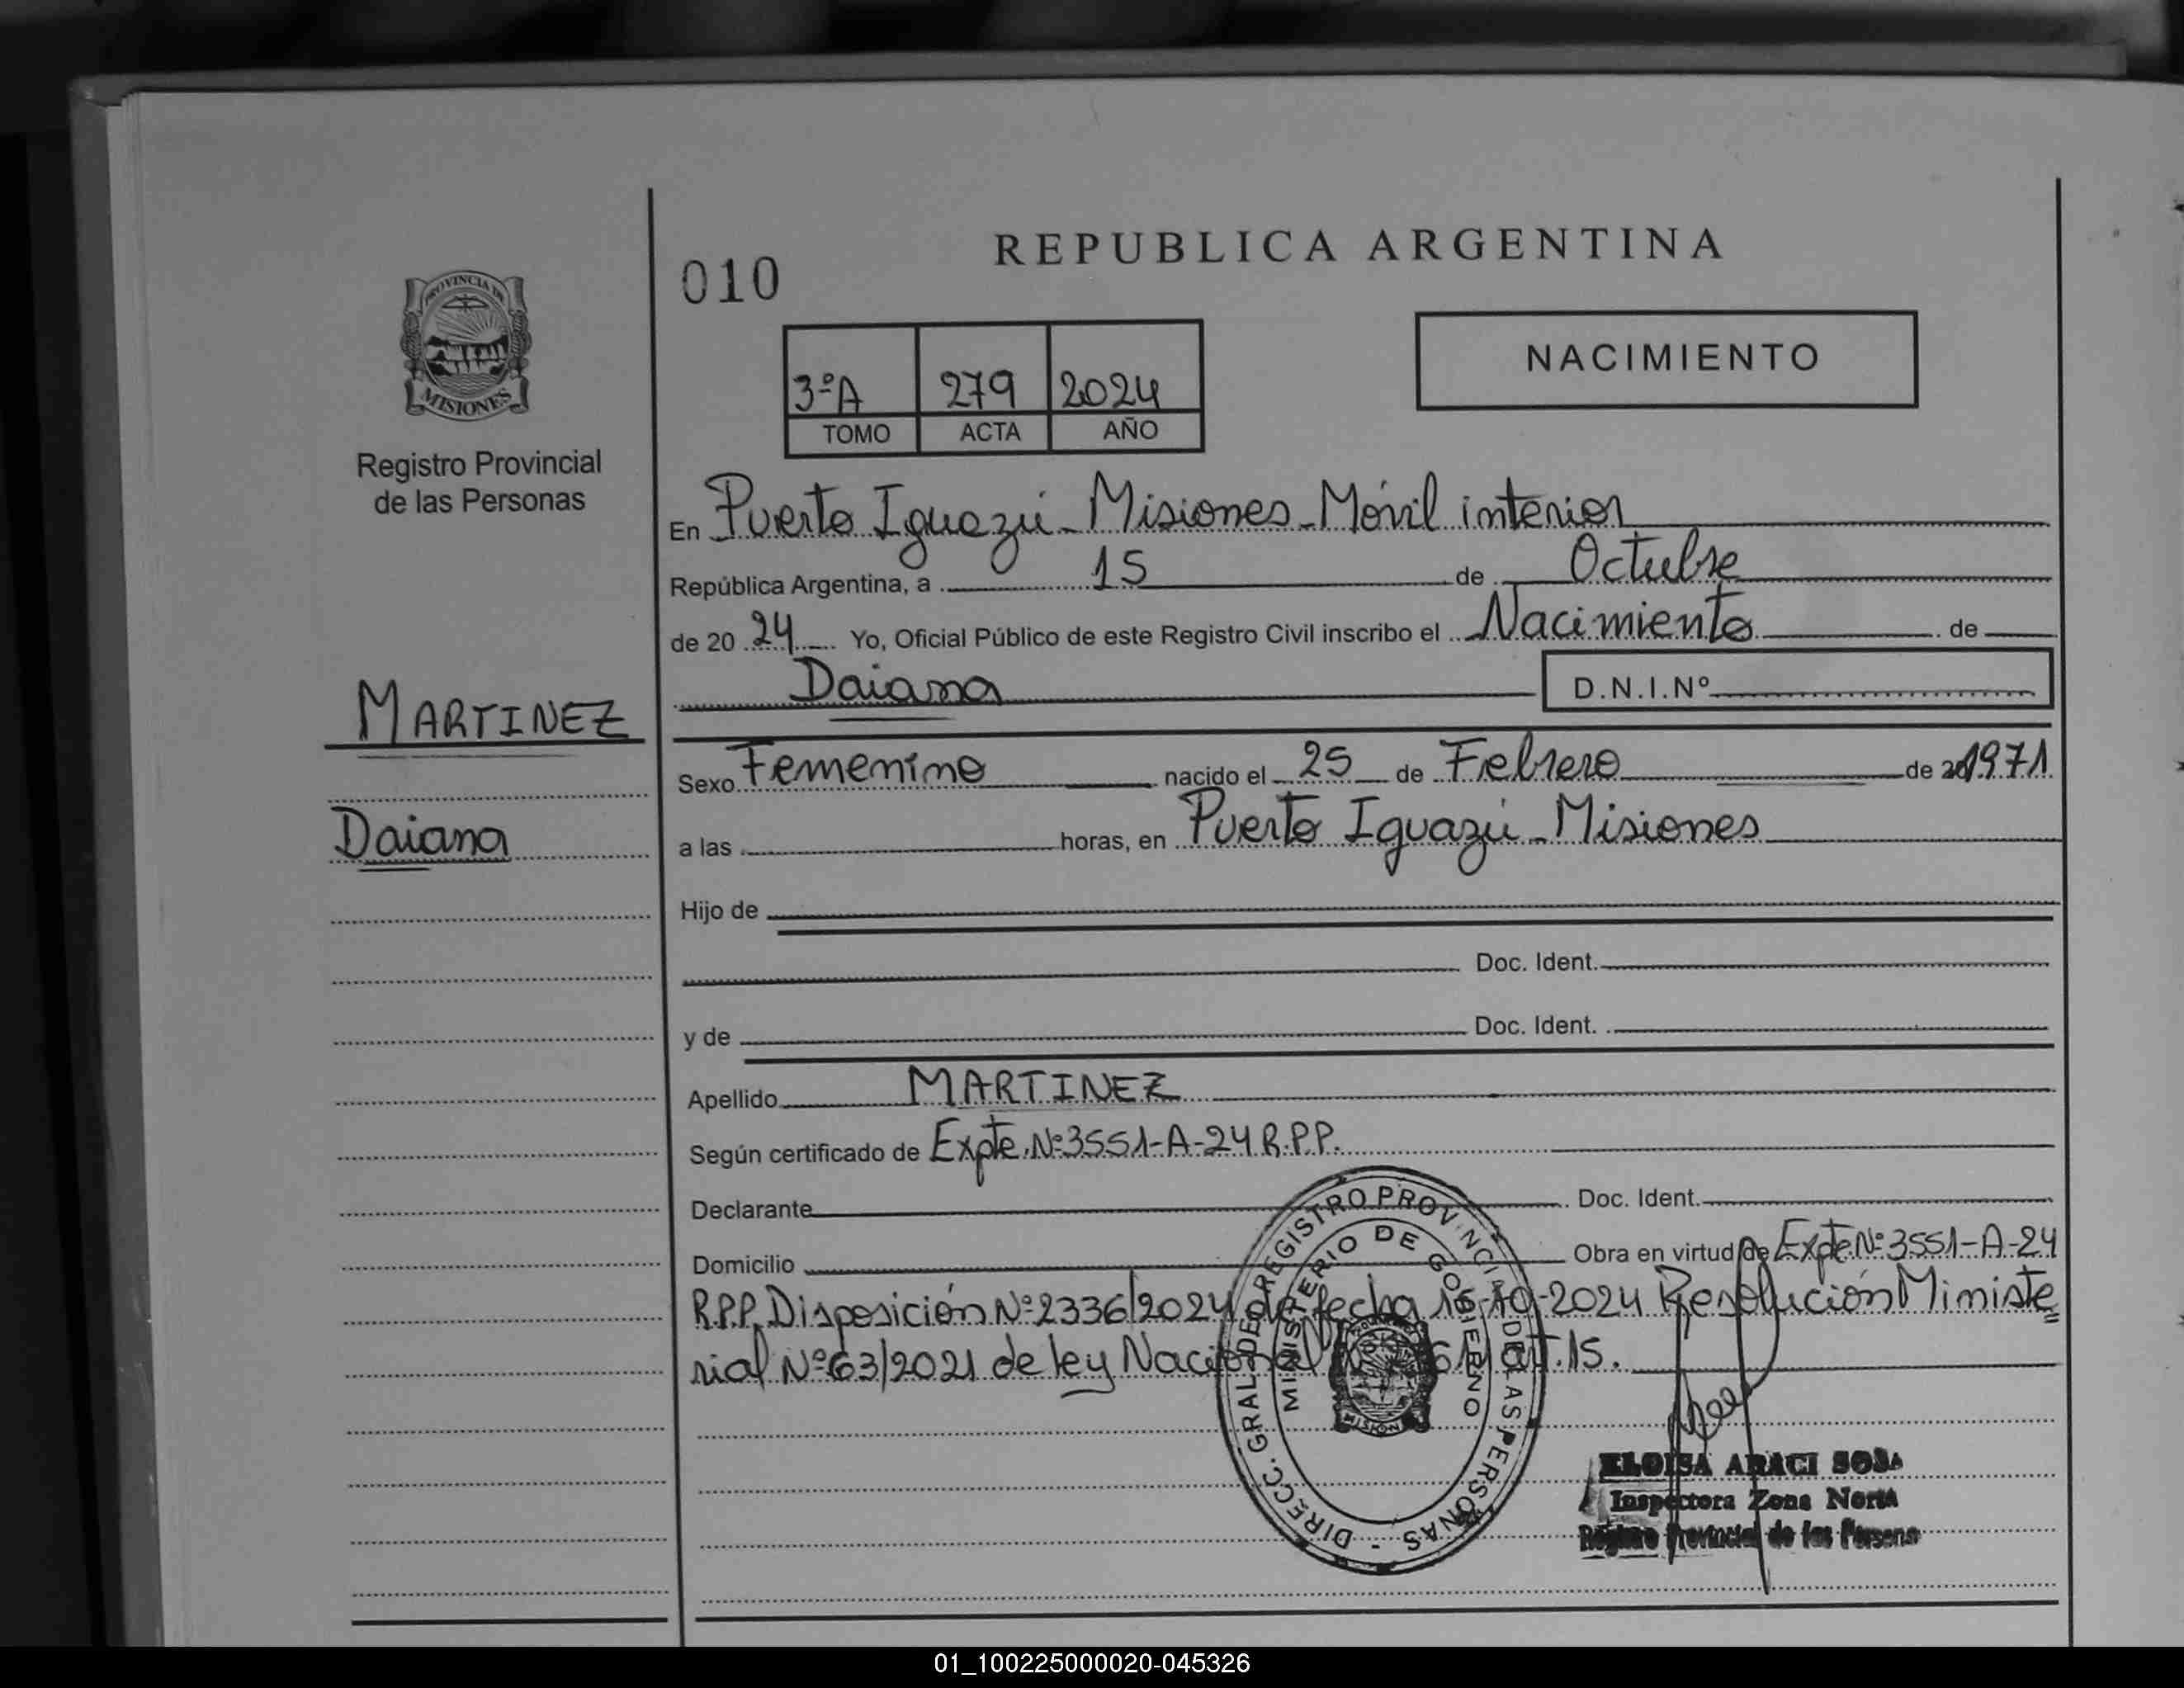 REPUBLICA ARGENTINA
010
NACIMIENTO
3ºA 279 2024
TOMO ACTA AÑO
PROVINCIA DE
MISIONES
Registro Provincial
de las Personas
En Puerto Iguazú - Misiones - Móvil interior
República Argentina, a 15 de Octubre
de 20 24 Yo, Oficial Público de este Registro Civil inscribo el Nacimiento de
Daiana D.N.I.Nº
MARTINEZ
Daiana
Sexo Femenino nacido el 25 de Febrero de 1971
a las horas, en Puerto Iguazú - Misiones
Hijo de
Doc. Ident.
y de Doc. Ident.
Apellido MARTINEZ
Según certificado de Expte. Nº 3551-A-24 R.P.P.
Declarante Doc. Ident.
Domicilio Obra en virtud de Expte Nº 3551-A-24
R.P.P. Disposición Nº 2336/2024 de fecha -2024 Resolución Ministe
rial Nº 63/2021 de ley Nacional art. 15.
DIRECC. GRAL. DE REGISTRO PROVINCIAL DE LAS PERSONAS -
MINISTERIO DE GOBIERNO
ELOISA ARACI SOSA
Inspectora Zona Norte
Registro Provincial de las Persona
01_100225000020-045326